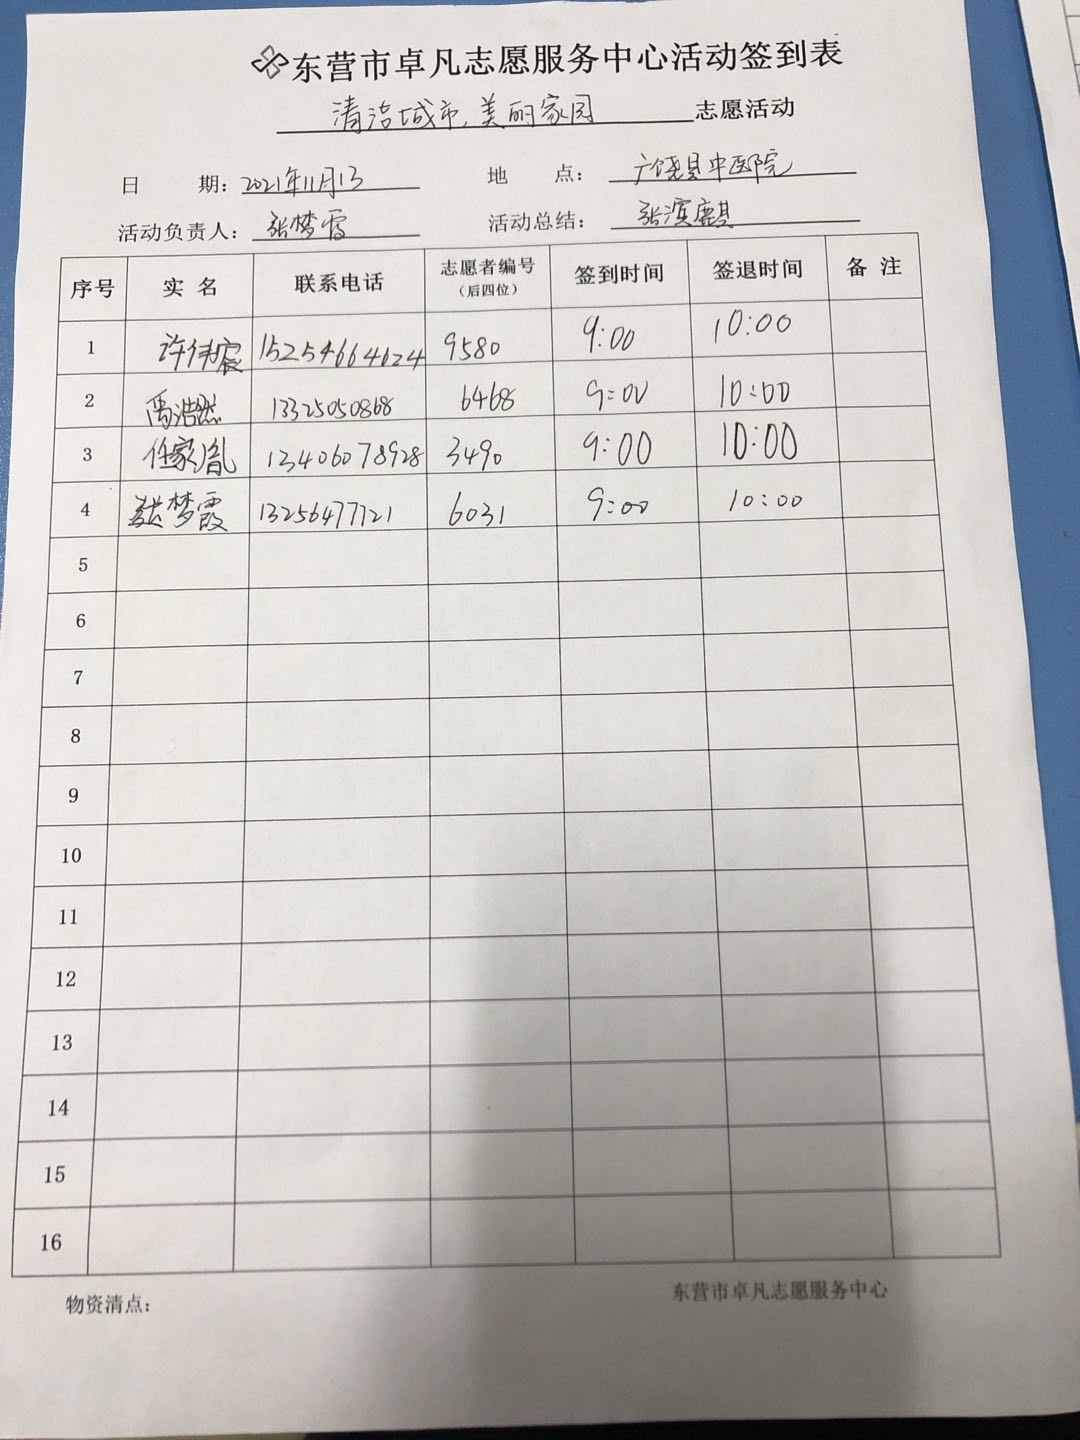 东营市卓凡志愿服务中心活动签到表
清洁城市,美丽家园 志愿活动
日 期: 2021年11月13 地 点: 广饶县中医院
活动负责人: 张梦霞 活动总结: 张滨麒
序号 实名 联系电话 志愿者编号(后四位) 签到时间 签退时间 备注
1 许伟宸 15254664624 9580 9:00 10:00
2 禹浩然 13325050868 6468 9:00 10:00
3 任家胤 13406078928 3490 9:00 10:00
4 张梦霞 13256477121 6031 9:00 10:00
5
6
7
8
9
10
11
12
13
14
15
16
物资清点: 东营市卓凡志愿服务中心